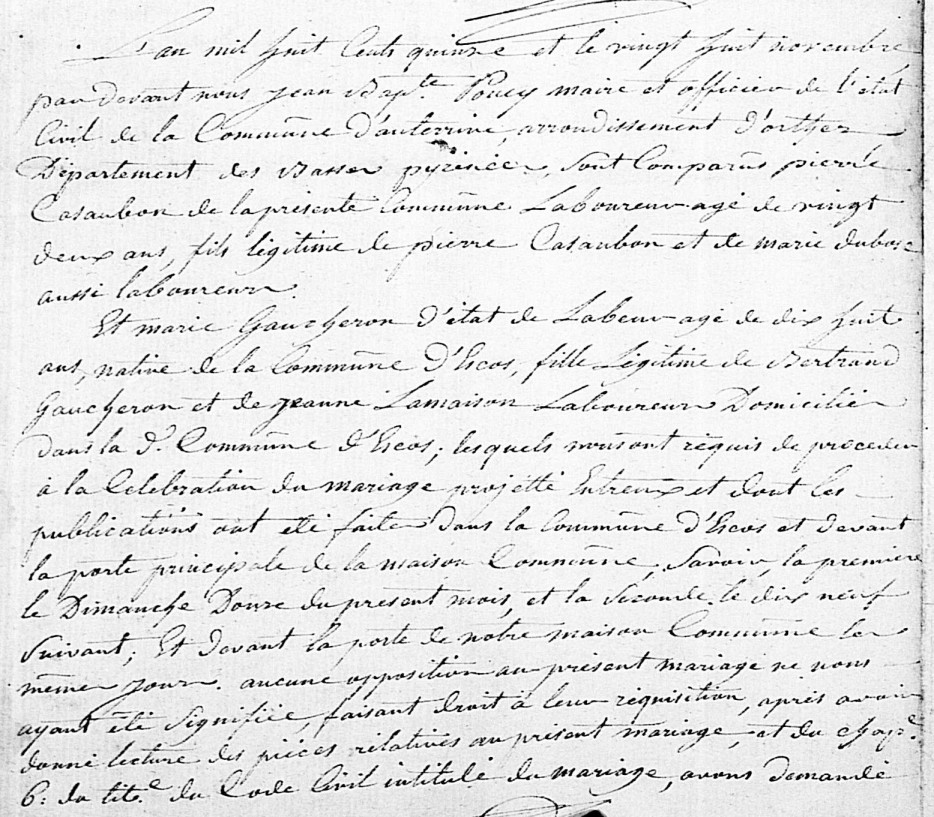 L'an mil huit Cents quinze et le vingt huit novembre
par devant nous jean Bapte. Poucy maire et officier de l'état
Civil de la Commune d'auterrive, arrondissement d'orthez
Département des Basses pyrénées, sont Comparus pierre
Casaubon de la présente Commune Laboureur agé de vingt
deux ans, fils légitime de pierre Casaubon et de marie dubosc
aussi laboureurs.
Et marie Gaucheron d'état de Labeur agé de dix huit
ans, native de la Commune d'Escos, fille Légitime de Bertrand
Gaucheron et de jeanne Lamaison Laboureurs Domiciliés
dans la d. Commune d'Escos; lesquels nous ont requis de proceder
à la Celebration du mariage projetté Entreux et dont les
publications ont été faites dans la Commune d'Escos et devant
la porte principale de la maison Commune, Savoir, la premiere
le Dimanche Douze du present mois, et la Seconde le dix neuf
Suivant; Et devant la porte de notre maison Commune les
mêmes jours. aucune opposition au présent mariage ne nous
ayant été Signifiée, faisant droit à leur réquisition, après avoir
donné lecture des piéces relatives au présent mariage, et du Chap.
6: du tit. du Code Civil intitulé du mariage, avons demandé